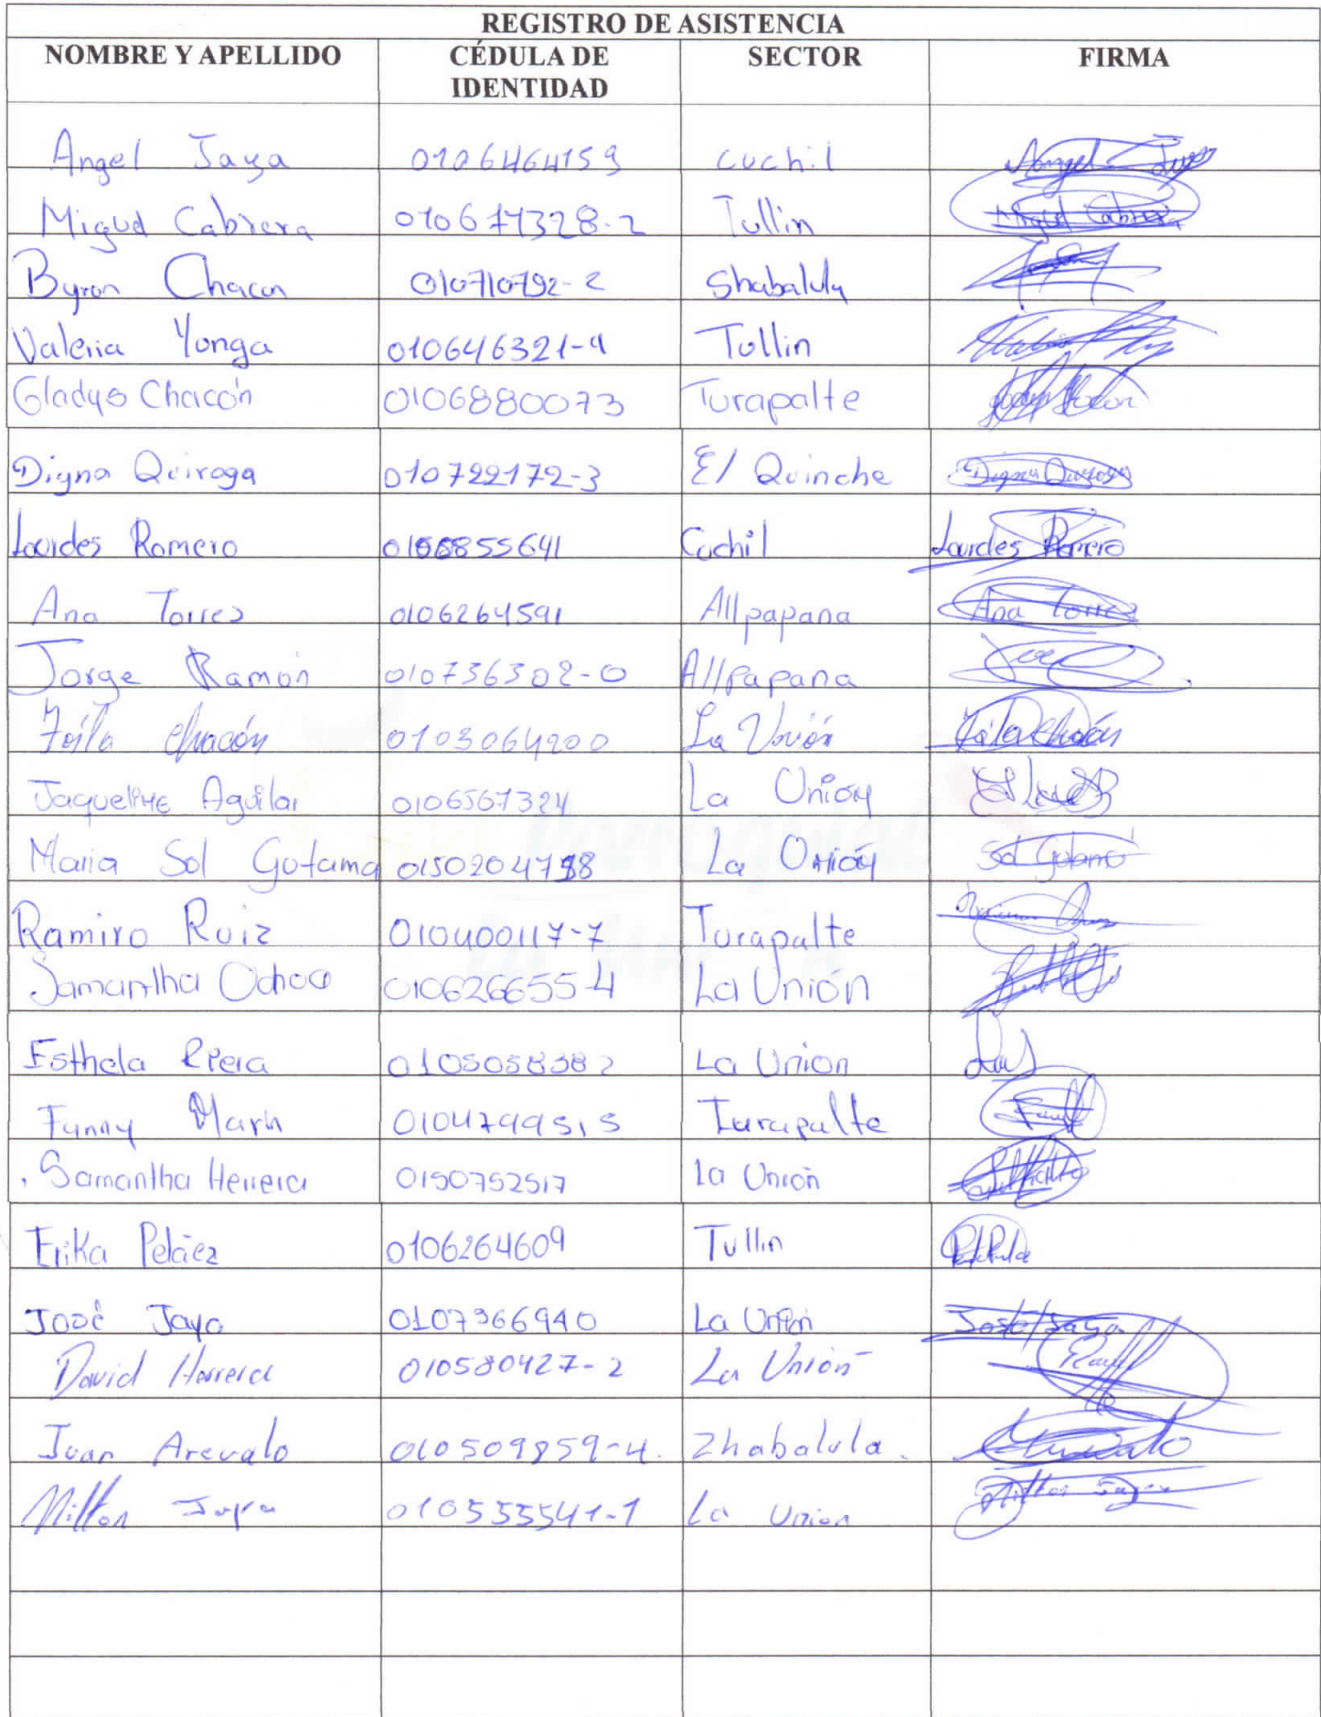 REGISTRO DE ASISTENCIA
NOMBRE Y APELLIDO CÉDULA DE IDENTIDAD SECTOR FIRMA
Angel Jaya 0106464159 cuchil Angel Jaya
Miguel Cabrera 010671328-2 Tullin Miguel Cabrera
Byron Chacon 010710792-2 Shabalula
Valeria Yunga 010646321-4 Tullin
Gladys Chacón 0106880073 Turapalte
Digna Quiroga 010722172-3 El Quinche Digna Quiroga
Lourdes Romero 0106855641 Cuchil Lourdes Romero
Ana Torres 0106264591 Allpapana Ana Torres
Jorge Ramón 010736302-0 Allpapana
Zoila Chacón 0103064200 La Unión Zoila Chacón
Jaqueline Aguilar 0106567324 La Unión
Maria Sol Gutama 0150204798 La Unión Sol Gutama
Ramiro Ruiz 010400117-7 Turapalte
Samantha Ochoa 010626655-4 La Unión
Esthela Riera 0105058382 La Union
Fanny Marin 0104799515 Turapalte
Samantha Herrera 0150752517 la Unión
Erika Peláez 0106264609 Tullin
José Jaya 0107366940 La Unión José Jaya
David Herrera 010580427-2 La Unión
Juan Arevalo 010509859-4. Zhabalula.
Milton Jaya 010555541-1 La Union Milton Jaya